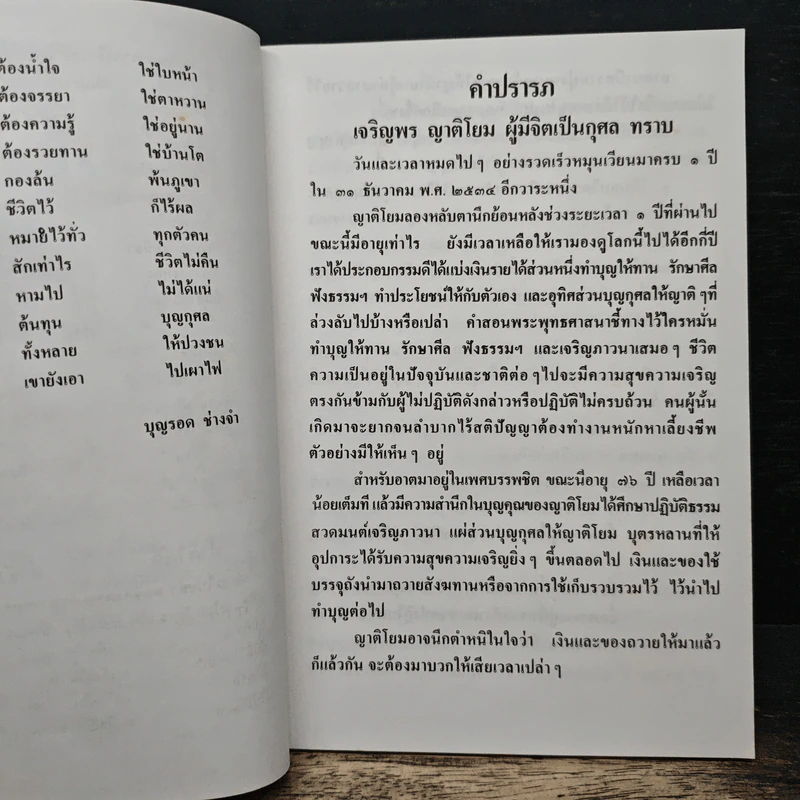 ต้องน้ำใจ ใช่ใบหน้า
ต้องจรรยา ใช่ตาหวาน
ต้องความรู้ ใช่อยู่นาน
ต้องรวยทาน ใช่บ้านโต
กองล้น พ้นภูเขา
ชีวิตไว้ ก็ไร้ผล
หมายิไว้ทั่ว ทุกตัวคน
สักเท่าไร ชีวิตไม่คืน
หามไป ไม่ได้แน่
ต้นทุน บุญกุศล
ทั้งหลาย ให้ปวงชน
เขายังเอา ไปเผาไฟ
บุญรอด ช่างจำ
คำปรารภ
เจริญพร ญาติโยม ผู้มีจิตเป็นกุศล ทราบ
วันและเวลาหมดไปๆ อย่างรวดเร็วหมุนเวียนมาครบ ๑ ปี
ใน ๓๑ ธันวาคม พ.ศ. ๒๕๓๔ อีกวาระหนึ่ง
ญาติโยมลองหลับตานึกย้อนหลังช่วงระยะเวลา ๑ ปีที่ผ่านไป
ขณะนี้มีอายุเท่าไร ยังมีเวลาเหลือให้เรามองดูโลกนี้ไปได้อีกกี่ปี
เราได้ประกอบกรรมดีได้แบ่งเงินรายได้ส่วนหนึ่งทำบุญให้ทาน รักษาศีล
ฟังธรรมฯ ทำประโยชน์ให้กับตัวเอง และอุทิศส่วนบุญกุศลให้ญาติๆที่
ล่วงลับไปบ้างหรือเปล่า คำสอนพระพุทธศาสนาชี้ทางไว้ใครหมั่น
ทำบุญให้ทาน รักษาศีล ฟังธรรมฯ และเจริญภาวนาเสมอๆ ชีวิต
ความเป็นอยู่ในปัจจุบันและชาติต่อๆไปจะมีความสุขความเจริญ
ตรงกันข้ามกับผู้ไม่ปฏิบัติดังกล่าวหรือปฏิบัติไม่ครบถ้วน คนผู้นั้น
เกิดมาจะยากจนลำบากไร้สติปัญญาต้องทำงานหนักหาเลี้ยงชีพ
ตัวอย่างมีให้เห็นๆ อยู่
สำหรับอาตมาอยู่ในเพศบรรพชิต ขณะนี้อายุ ๗๖ ปี เหลือเวลา
น้อยเต็มที แล้วมีความสำนึกในบุญคุณของญาติโยมได้ศึกษาปฏิบัติธรรม
สวดมนต์เจริญภาวนา แผ่ส่วนบุญกุศลให้ญาติโยม บุตรหลานที่ให้
อุปการะได้รับความสุขความเจริญยิ่งๆ ขึ้นตลอดไป เงินและของใช้
บรรจุถังนำมาถวายสังฆทานหรือจากการใช้เก็บรวบรวมไว้ ไว้นำไป
ทำบุญต่อไป
ญาติโยมอาจนึกตำหนิในใจว่า เงินและของถวายให้มาแล้ว
ก็แล้วกัน จะต้องมาบวกให้เสียเวลาเปล่าๆ